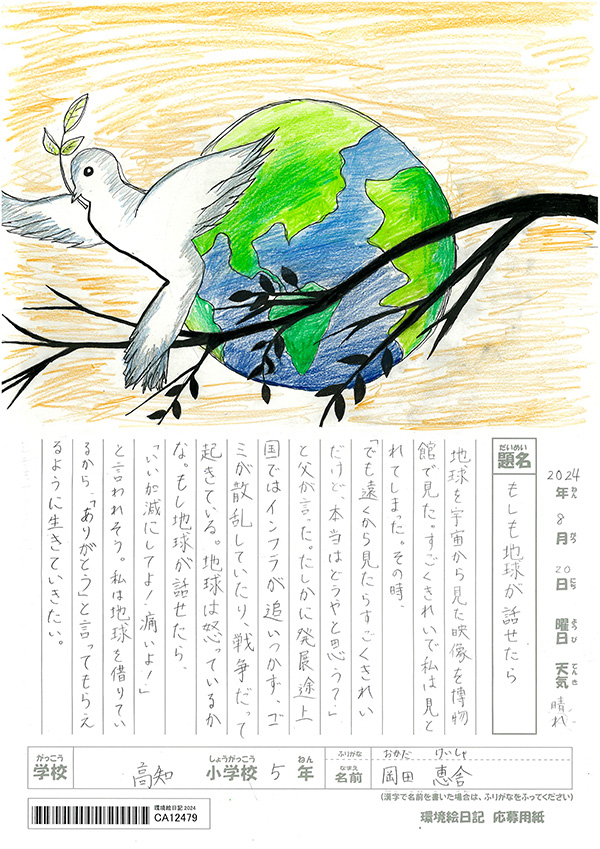 2024年ねん 8月がつ 20日にち 曜日ようび 天気てんき 晴れ
だいめい
題名
もしも地球が話せたら
地球を宇宙から見た映像を博物
館で見た。すごくきれいで私は見と
れてしまった。その時、
「でも遠くから見たらすごくきれい
だけど、本当はどうやと思う？」
と父が言った。たしかに発展途上
国ではインフラが追いつかず、ゴ
ミが散乱していたり、戦争だって
起きている。地球は怒っているか
な。もし地球が話せたら、
「いい加減にしてよ！痛いよ！」
と言われそう。私は地球を借りてい
るから、「ありがとう」と言ってもらえ
るように生きていきたい。
がっこう しょうがっこう ねん ふりがな おかだ けいしゃ
学校 高知 小学校 5 年 なまえ 名前 岡田 恵舎
(漢字で名前を書いた場合は、ふりがなをふってください)
環境絵日記2024
CA12479
環境絵日記 応募用紙